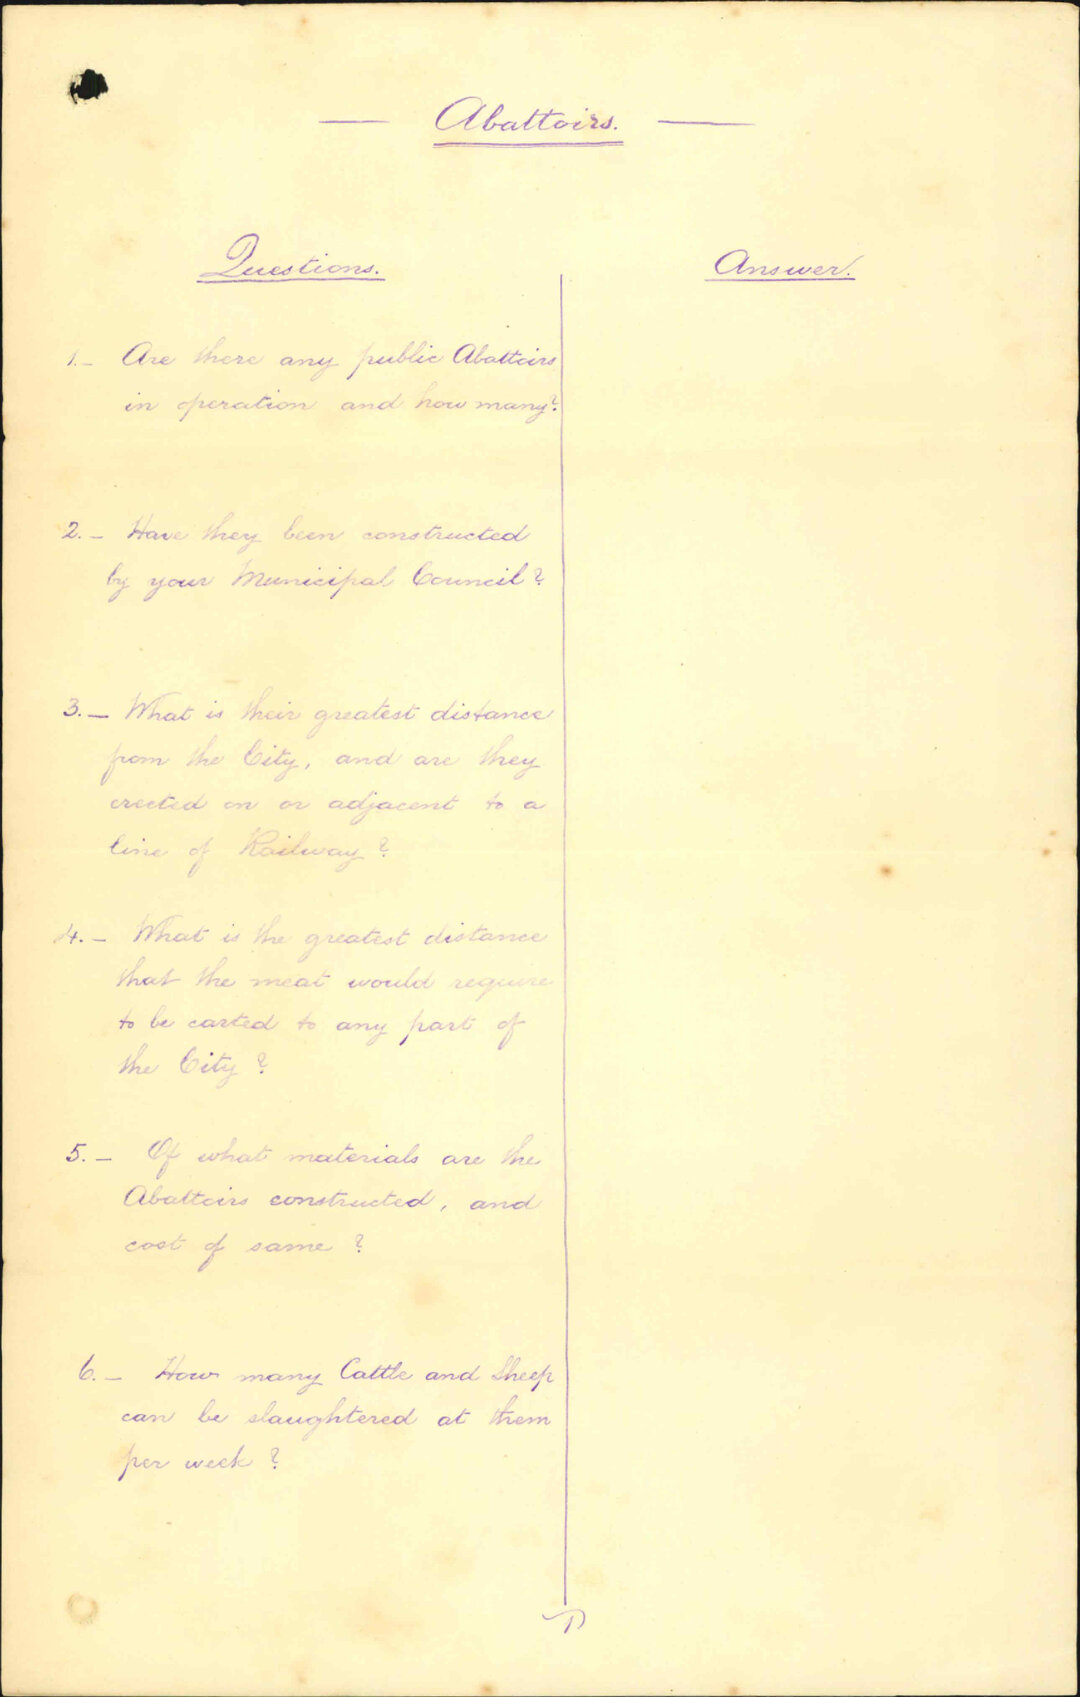 — Abattoirs. —
Questions.
Answer.
1.- Are there any public Abattoirs
in operation and how many?
2.- Have they been constructed
by your Municipal Council?
3.- What is their greatest distance
from the City, and are they
erected on or adjacent to a
line of Railway?
4.- What is the greatest distance
that the meat would require
to be carted to any part of
the City?
5.- Of what materials are the
Abattoirs constructed, and
cost of same?
6.- How many Cattle and Sheep
can be slaughtered at them
per week?